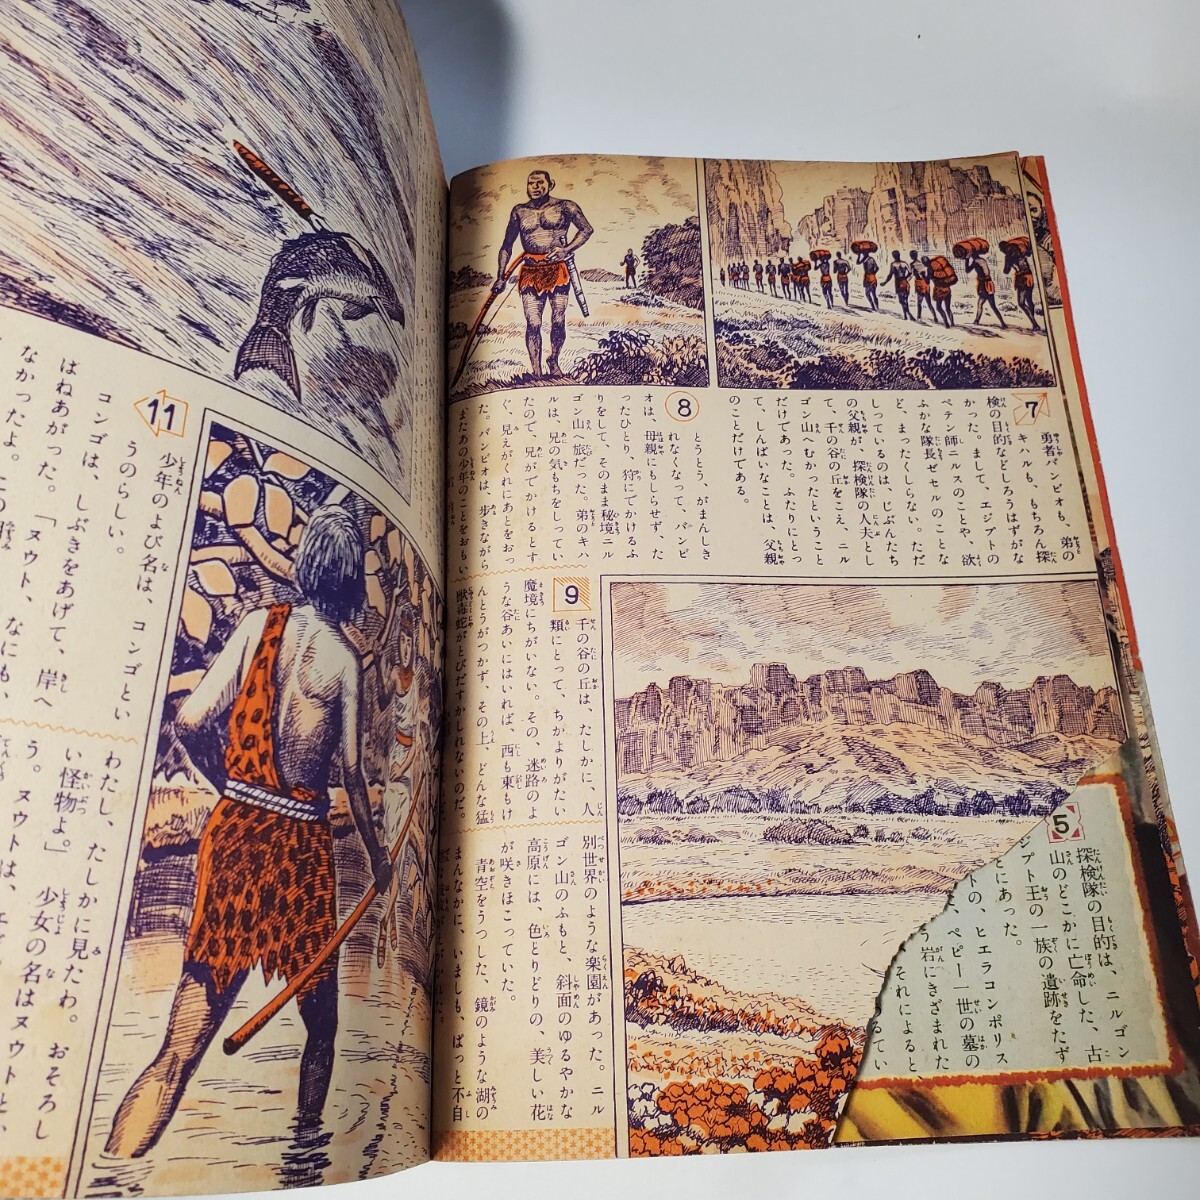 7
勇者バンビオも、弟の
キハルも、もちろん探
検の目的などしろうはずがな
かった。まして、エジプトの
ペテン師ニルスのことや、欲
ふかな隊長ゼセルのことな
ど、まったくしらない。ただ
しっているのは、じぶんたち
の父親が、探検隊の人夫とし
て、千の谷の丘をこえ、ニル
ゴン山へむかったということ
だけであった。ふたりにとっ
て、しんぱいなことは、父親
のことだけである。
8
とうとう、がまんしき
れなくなって、バンビ
オは、母親にもしらせず、た
ったひとり、狩にでかけるふ
りをして、そのまま秘境ニル
ゴン山へ旅だった。弟のキハ
ルは、兄の気もちをしってい
たので、兄がでかけるとす
ぐ、見えがくれにあとをおっ
た。バンビオは、歩きながら
またあの少年のことをおもい
9
千の谷の丘は、たしかに、人
類にとって、ちかよりがたい
魔境にちがいない。その、迷路のよ
うな谷あいにはいれば、西も東もけ
んとうがつかず、その上、どんな猛
獣毒蛇がとびだすかしれないのだ。
別世界のような楽園があった。ニル
ゴン山のふもと、斜面のゆるやかな
高原には、色とりどりの、美しい花
が咲きほこっていた。
青空をうつした、鏡のような湖の
まんなかに、いましも、ぱっと不自
5
探検隊の目的は、ニルゴン
山のどこかに亡命した、古
ジプト王の一族の遺跡をたず
とにあった。
トの、ヒエラコンポリス
、ペピー一世の墓の
う岩にきざまれた
、それによると
るてい
11
少年のよび名は、コンゴとい
うのらしい。
コンゴは、しぶきをあげて、岸へ
はねあがった。「ヌウト、なにも、
なかったよ。この
わたし、たしかに見たわ。おそろし
い怪物よ。」少女の名はヌウトと、
う。ヌウトは、エ